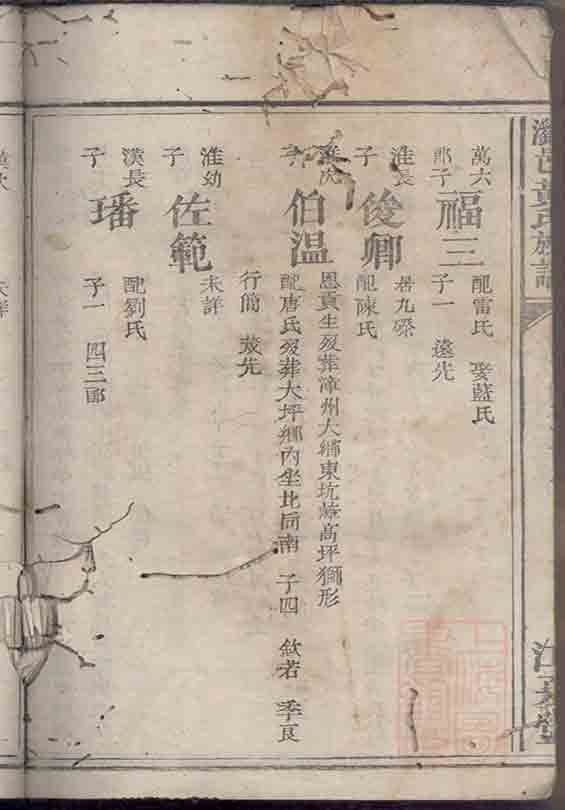 黃氏族譜
江夏堂
萬六
郎子
福三
配雷氏 娶藍氏
子一 遠先
淮長
子
俊卿
居九磔
配陳氏
淮次
子
伯温
恩貢生歿葬漳州大鄉東坑蓭高坪獅形
配唐氏歿葬大坪鄉內坐北向南 子四 欽若 季良
行簡 茂先
淮幼
子
佐範
未詳
漢長
子
璠
配劉氏
子一 四三郎